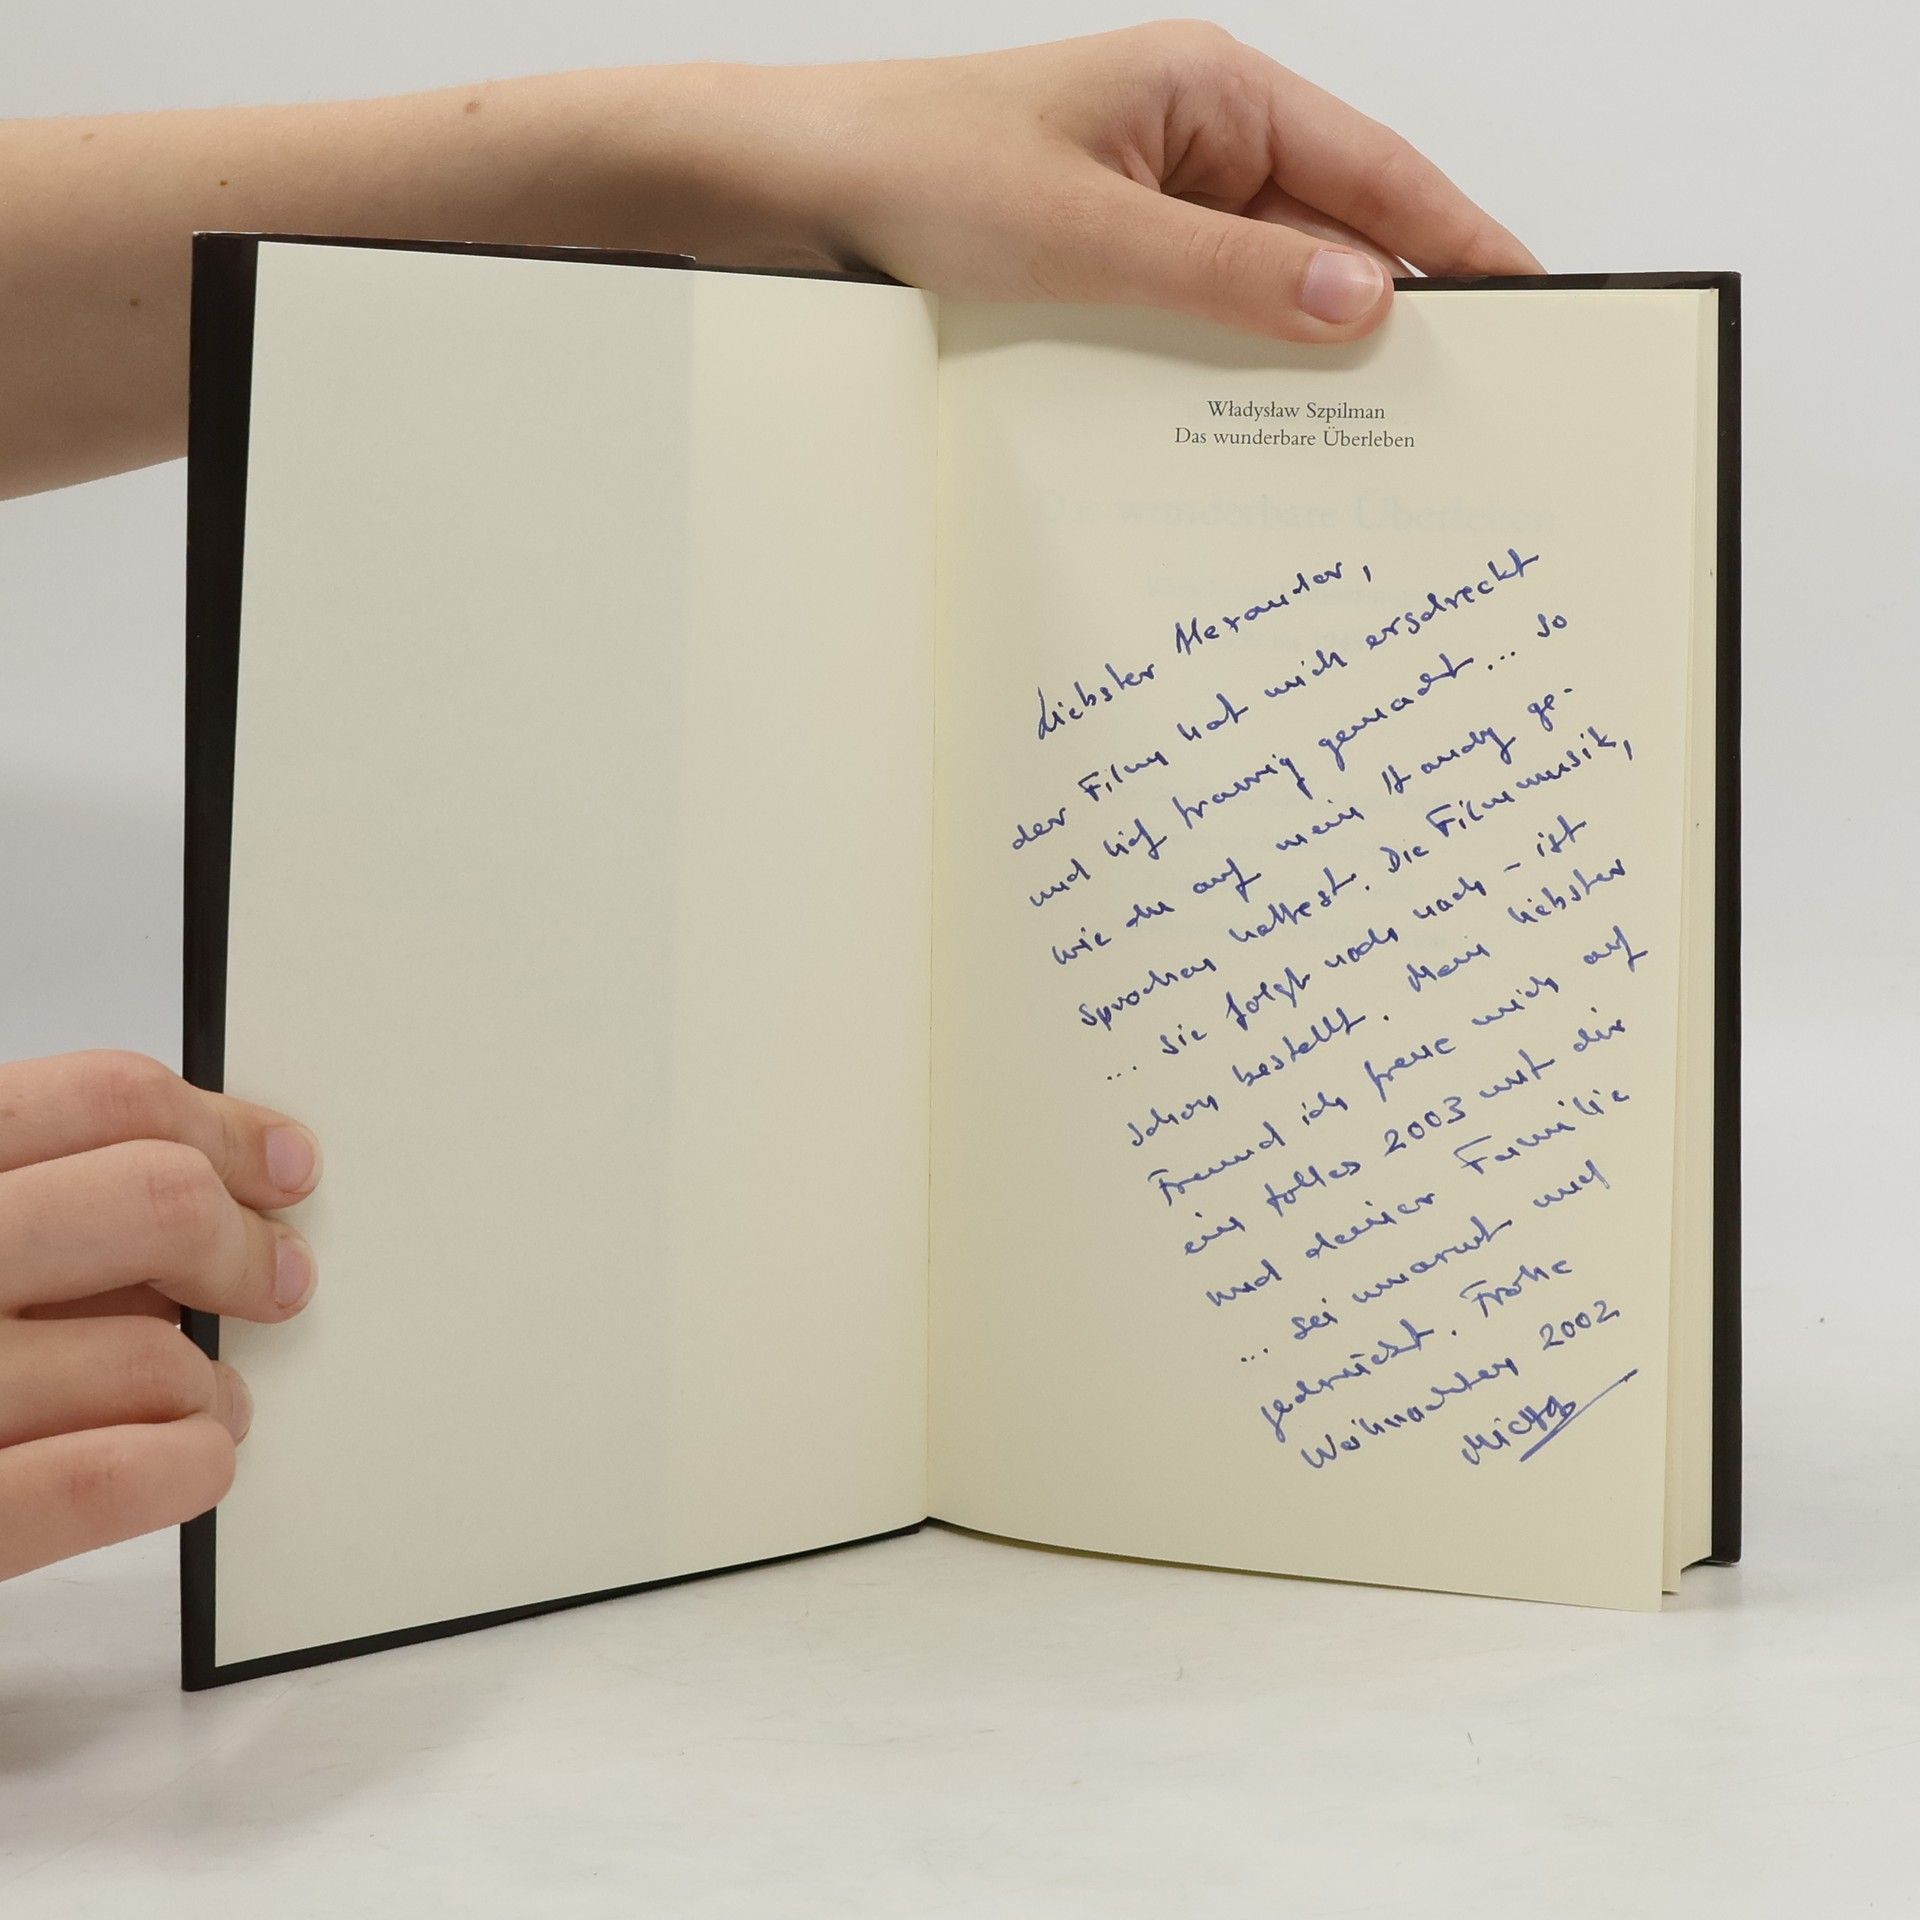 Władysław Szpilman
Das wunderbare Überleben
Liebster Alexander,
der Film hat mich erschreckt
und tief traurig gemacht... so
wie du auf mein Handy ge-
sprochen hattest. Die Filmmusik,
... sie folgt noch nach - ist
schon bestellt. Mein liebster
Freund ich freue mich auf
ein tolles 2003 mit dir
und deiner Familie
... sei umarmt und
gedrückt. Frohe
Weihnachten 2002